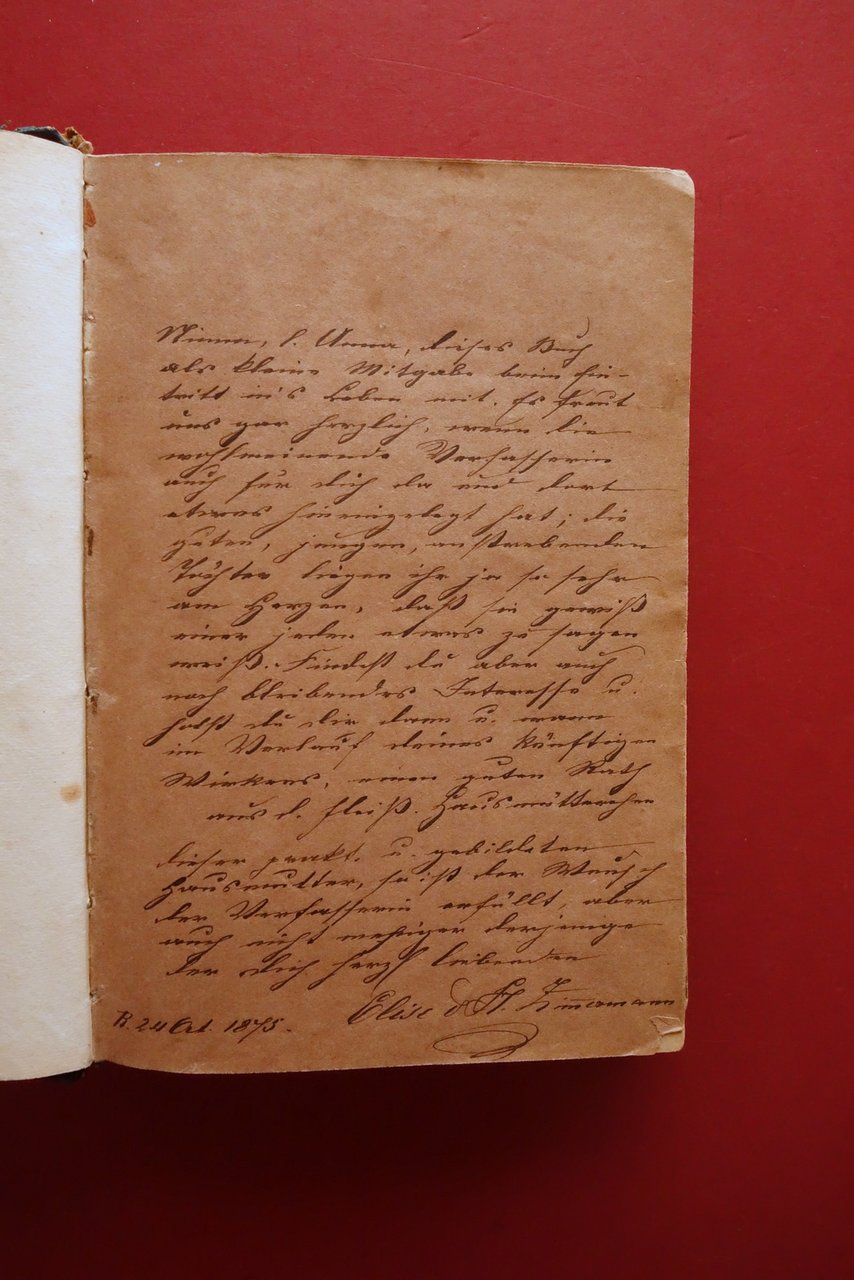 Nimm, l. Anna, dieses Buch
als kleine Mitgabe beim Ein-
tritt in's Leben mit. Es freut
uns gar herzlich, wenn die
wohlmeinende Verfasserin
auch für dich da und dort
etwas hineingelegt hat; die
guten, jungen, anstrebenden
Töchter liegen ihr ja so sehr
am Herzen, daß sie gewiß
einer jeden etwas zu sagen
weiß. Findest du aber auch
noch bleibendes Interesse u.
holst du dir dann u. wann
im Verlauf deines künftigen
Wirkens, einen guten Rath
aus d. fleiß. Hausmütterchen
dieser prakt. u. gebildeten
Hausmutter, so ist der Wunsch
der Verfasserin erfüllt, aber
auch nicht weniger derjenige
der dich herzl. liebenden
Elise & H. Zimmermann
R. 24 Oct. 1875.